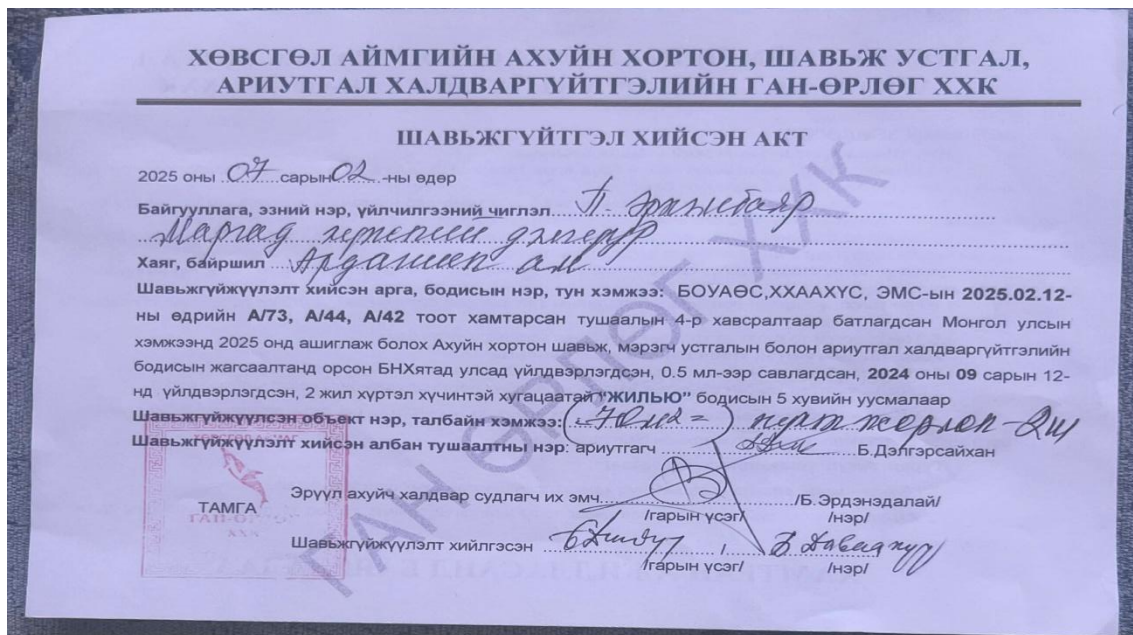 ХӨВСГӨЛ АЙМГИЙН АХУЙН ХОРТОН, ШАВЬЖ УСТГАЛ,
АРИУТГАЛ ХАЛДВАРГҮЙТГЭЛИЙН ГАН-ӨРЛӨГ ХХК
ШАВЬЖГҮЙТГЭЛ ХИЙСЭН АКТ
2025 оны 07 сарын 02 -ны өдөр
Байгууллага, эзний нэр, үйлчилгээний чиглэл П.
Маргад хүнсний дэлгүүр
Хаяг, байршил Ардагийн ам
Шавьжгүйжүүлэлт хийсэн арга, бодисын нэр, тун хэмжээ: БОУАӨС,ХХААХҮС, ЭМС-ын 2025.02.12-
ны өдрийн А/73, А/44, А/42 тоот хамтарсан тушаалын 4-р хавсралтаар батлагдсан Монгол улсын
хэмжээнд 2025 онд ашиглаж болох Ахуйн хортон шавьж, мэрэгч устгалын болон ариутгал халдваргүйтгэлийн
бодисын жагсаалтанд орсон БНХятад улсад үйлдвэрлэгдсэн, 0.5 мл-ээр савлагдсан, 2024 оны 09 сарын 12-
нд үйлдвэрлэгдсэн, 2 жил хүртэл хүчинтэй хугацаатай "ЖИЛЬЮ" бодисын 5 хувийн уусмалаар
Шавьжгүйжүүлсэн объект нэр, талбайн хэмжээ: (-70м2=) нүхэн жорлон-2ш
Шавьжгүйжүүлэлт хийсэн албан тушаалтны нэр: ариутгагч Б.Дэлгэрсайхан
ТАМГА
Эрүүл ахуйч халдвар судлагч их эмч /Б.Эрдэнэдалай/
/гарын үсэг/ /нэр/
Шавьжгүйжүүлэлт хийлгэсэн / Б Даваахүү
/гарын үсэг/ /нэр/
ГАН ӨРЛӨГ ХХК